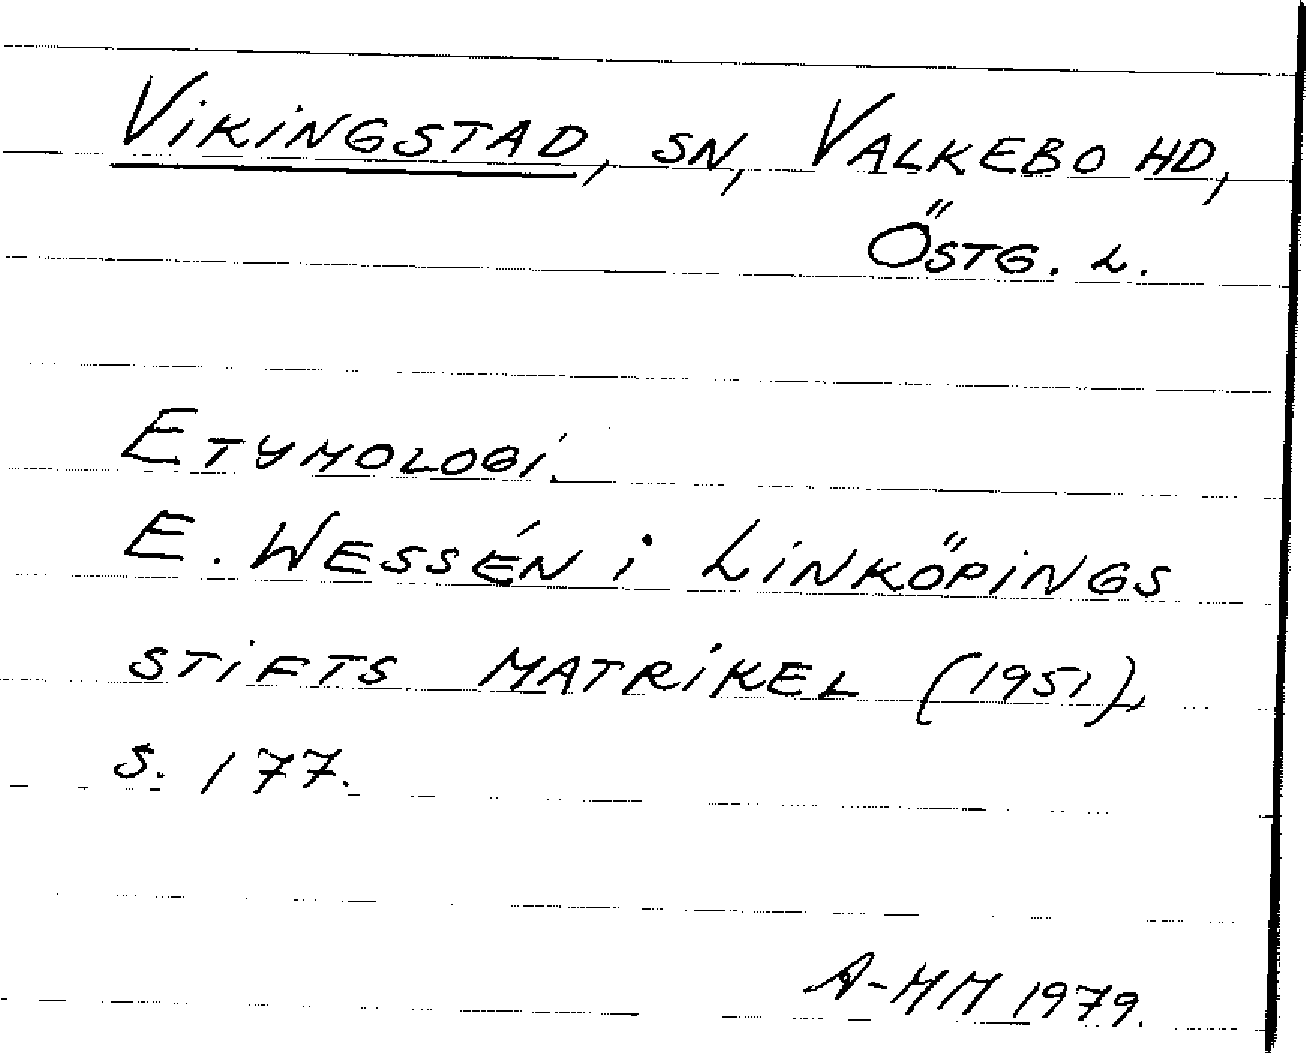 VIKINGSTAD, SN, VALKEBO HD,
ÖSTG. L.
ETYMOLOGI.
E. WESSÉN I LINKÖPINGS
STIFTS MATRIKEL (1951),
S. 177.
A-MM 1979.